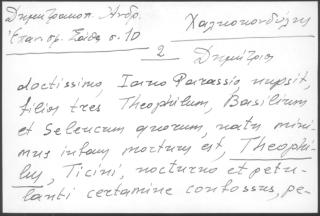 Δημητρακοπ. Ανδρ.
Χαλκοκονδύλης
Επανορ. Σάθα σ. 10
2 Δημήτριος
doctissimo, Iano Parrasio, nupsit,
filios tres Theophilum, Basilium
et Seleucum quorum, natu mini-
mus infans mortuus est, Theophi-
lus, Ticini, nocturno et petu-
lanti certamine confossus, pe-